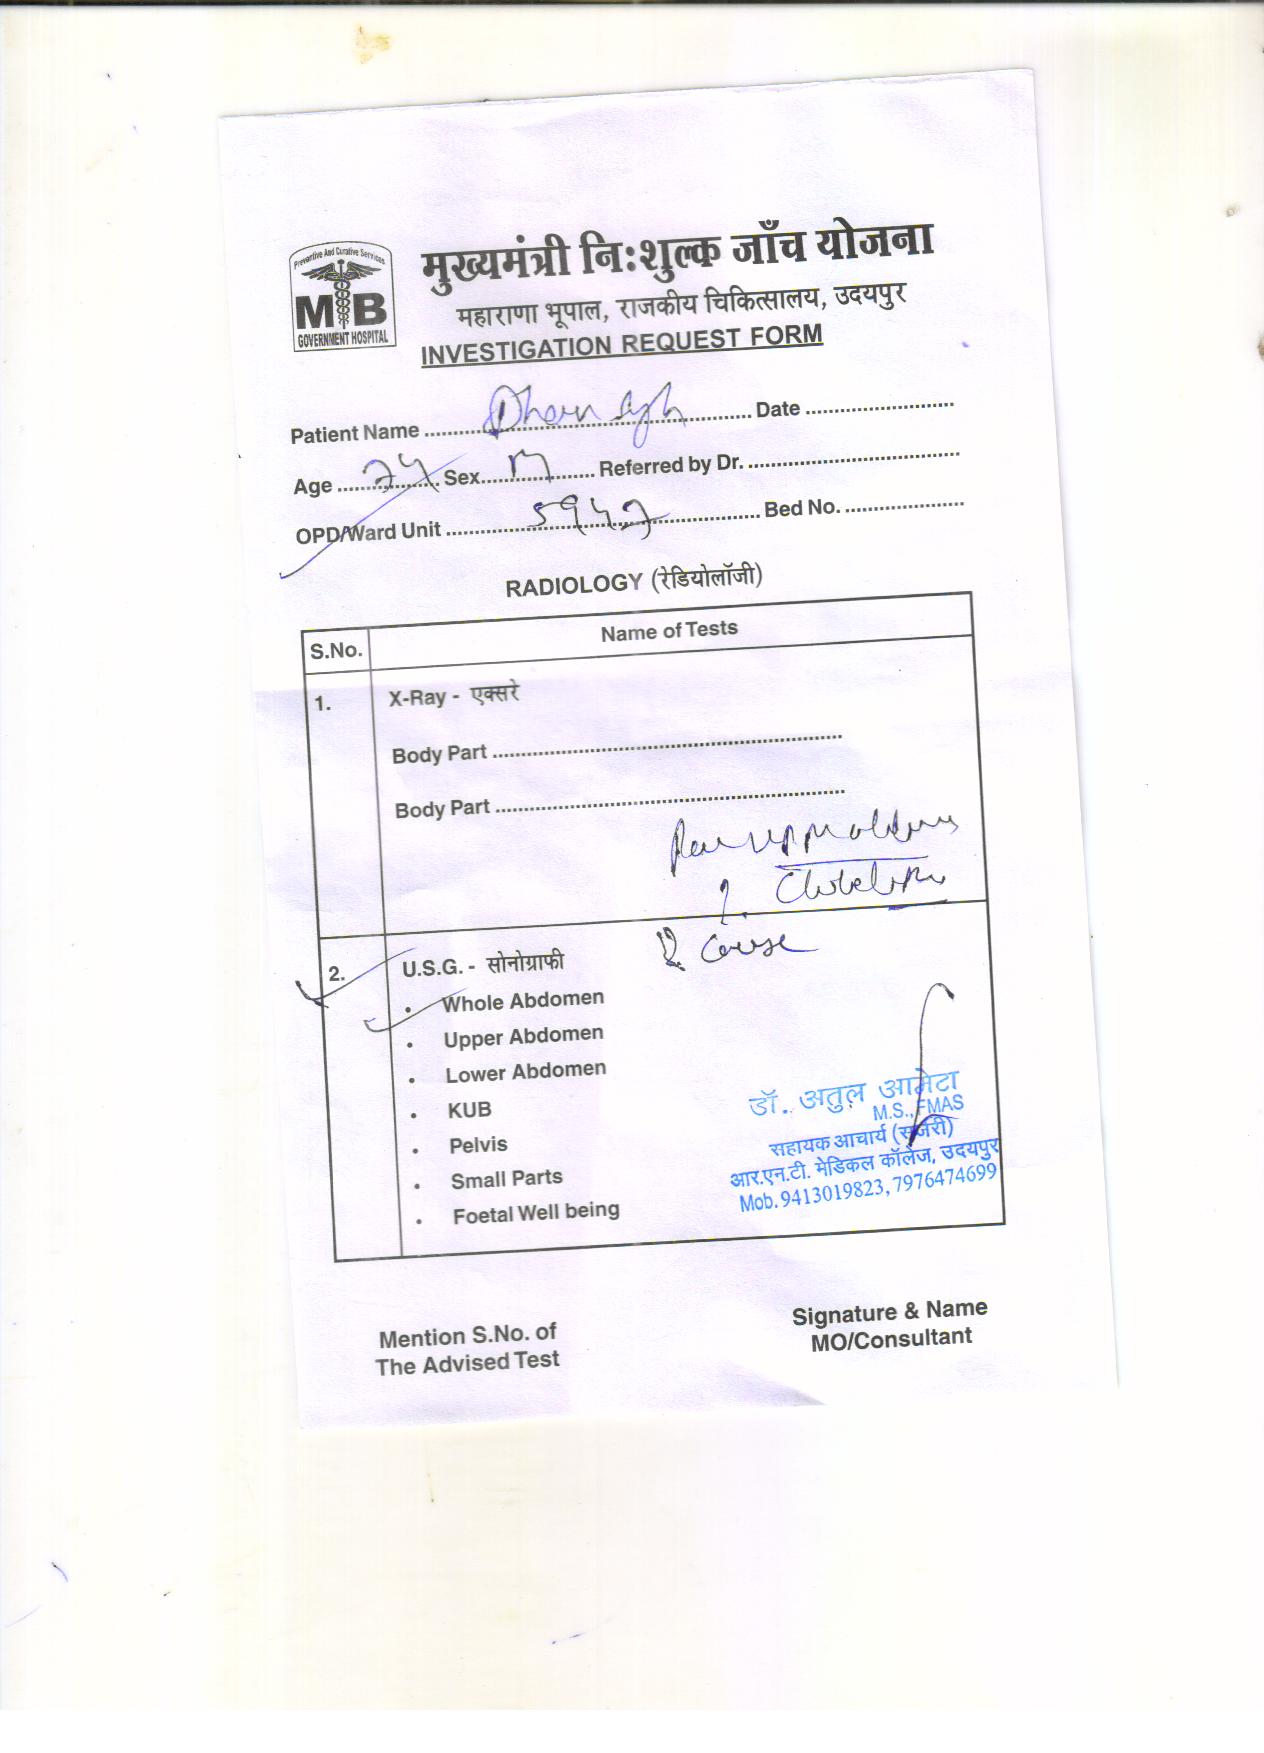 Preventive And Curative Services
MB
GOVERNMENT HOSPITAL
मुख्यमंत्री निःशुल्क जाँच योजना
महाराणा भूपाल, राजकीय चिकित्सालय, उदयपुर
INVESTIGATION REQUEST FORM
Patient Name .......... Date ..........
Age .......... Sex.......... M Referred by Dr. ..........
OPD/Ward Unit .......... Bed No. ..........
RADIOLOGY (रेडियोलॉजी)
S.No. Name of Tests
1. X-Ray - एक्सरे
Body Part ..........
Body Part ..........
2. U.S.G. - सोनोग्राफी
Cause
• Whole Abdomen
• Upper Abdomen
• Lower Abdomen
• KUB
• Pelvis
• Small Parts
• Foetal Well being
डॉ. अतुल आमेटा
M.S., FMAS
सहायक आचार्य (सर्जरी)
आर.एन.टी. मेडिकल कॉलेज, उदयपुर
Mob. 9413019823, 7976474699
Mention S.No. of
The Advised Test
Signature & Name
MO/Consultant